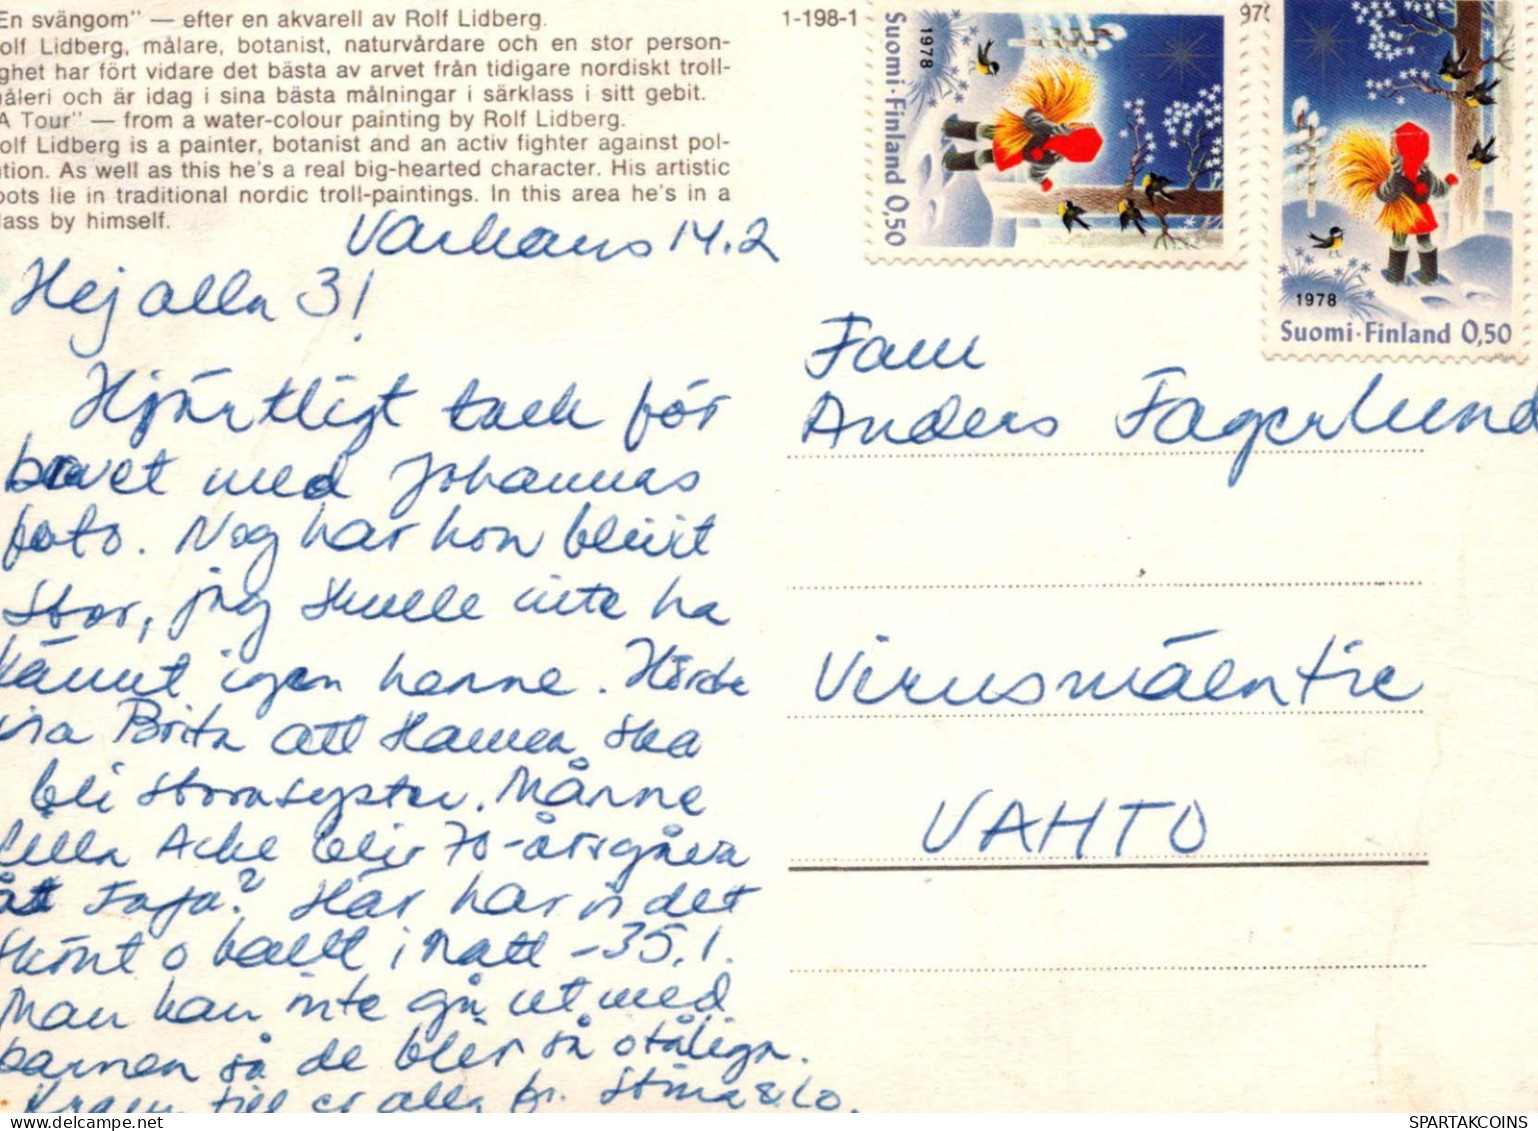 En svängom" — efter en akvarell av Rolf Lidberg.
olf Lidberg, målare, botanist, naturvårdare och en stor person-
ghet har fört vidare det bästa av arvet från tidigare nordiskt troll-
åleri och är idag i sina bästa målningar i särklass i sitt gebit.
A Tour" — from a water-colour painting by Rolf Lidberg.
olf Lidberg is a painter, botanist and an activ fighter against pol-
ution. As well as this he's a real big-hearted character. His artistic
oots lie in traditional nordic troll-paintings. In this area he's in a
lass by himself.
1-198-1
1978
Suomi·Finland 0,50
1978
Suomi·Finland 0,50
Varkaus 14.2
Hej alla 3!
Hjärtligt tack för
brevet med Johannas
foto. Nog har hon blivit
stor, jag skulle inte ha
känt igen henne. Hörde
Brita att Hannen ska
bli storasyster. Månne
lilla Acke blir 70-årsgåva
åt Fafa? Här har vi det
skönt o kallt i natt -35,1.
Man kan inte gå ut med
barnen så de blir så otåliga.
Kram till er alla fr. Stina & Co.
Fam
Anders Fagerlund
Virusmäentie
VAHTO
SPARTAKCOINS